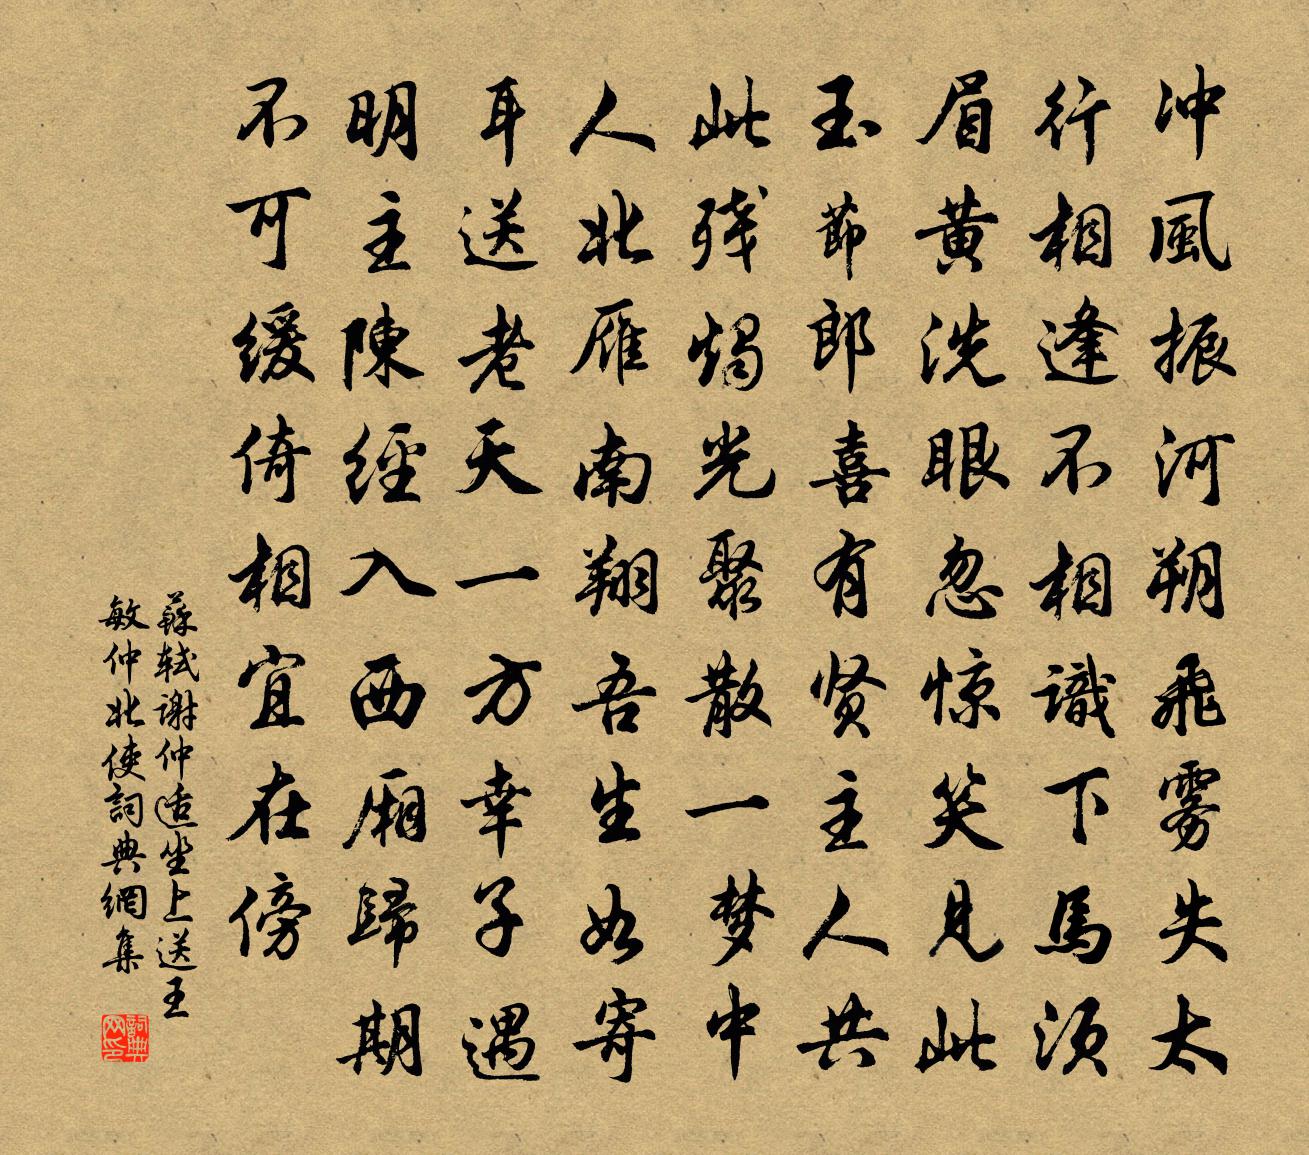 冲風振河朔飛雾失太
行相逢不相識下馬须
眉黄洗眼忽惊笑見此
玉節郎喜有贤主人共
此残燭光聚散一梦中
人北雁南翔吾生如寄
耳送老天一方幸子遇
明主陳經入西厢歸期
不可缓倚相宜在傍
蘇轼谢仲适坐上送王
敏仲北使詞典網集
詞典
网印